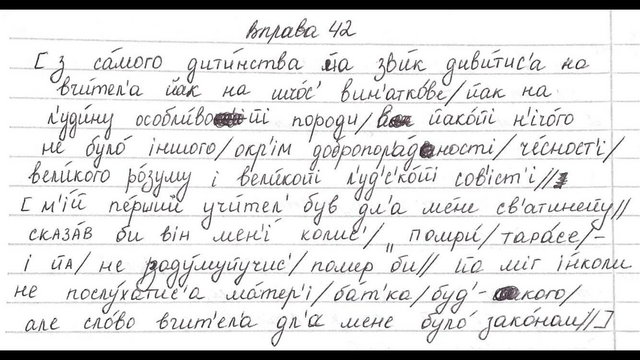 Вправа 42
[ з са́мого дити́нства йа зви́к диви́тис'а на
вчи́тел'а йак на шчо́с' вин'атко́ве/ йак на
л'уди́ну особли́войі поро́ди/ йако́йі н'ічо́го
не було́ і́ншого/ окр'і́м добропор'а́дности/ че́сност'і/
вели́кого ро́зуму і вели́койі л'уд'с'ко́йі со́в'іст'і//
[ м'ій пе́рший учи́тел' був дл'а ме́не св'ати́нейу//
сказа́в би він мен'і́ коли́с'/ „ помри́/ тара́се/ –
і йа/ не заду́муйучис'/ поме́р би// йа міг і́нколи
не послу́хатис'а ма́тер'і/ ба́т'ка/ буд'- кого/
але сло́во вчи́тел'а дл'а мене було́ зако́ном//]